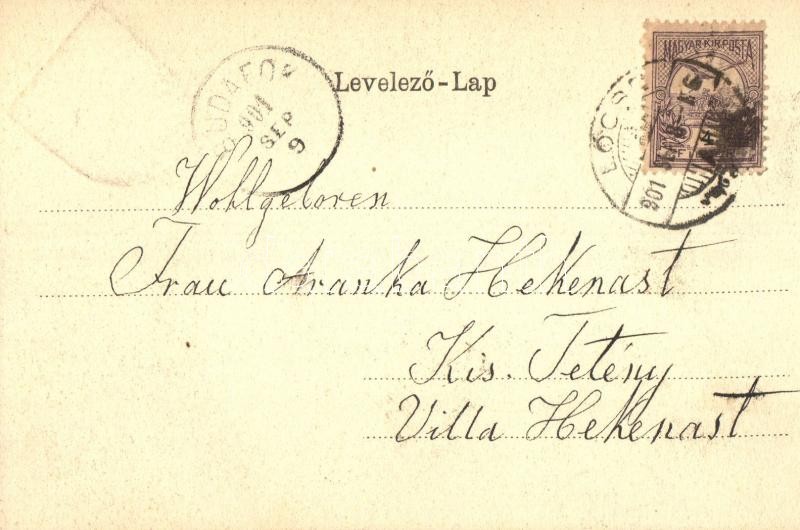 Levelező-Lap
MAGYAR·KIR·POSTA
BUDAFOK
901
SEP
9
LŐCSE
901
Wohlgeboren
Frau Aranka Hekenast
Kis. Tetény
Villa Hekenast